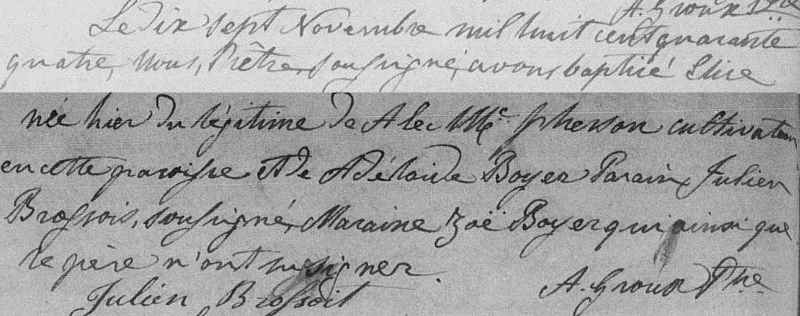 A. Groux Ptre
Le dix sept Novembre mil huit cent quarante
quatre, Nous, Prêtre, soussigné, avons baptisé Elise
née hier du légitime de Alec Mc. Pherson cultivateur
en cette paroisse et de Adélaide Boyer Parain, Julien
Brossois, soussigné, Maraine Zoë Boyer qui ainsi que
le père n'ont su signer.
Julien Brossoit A. Groux Ptre.